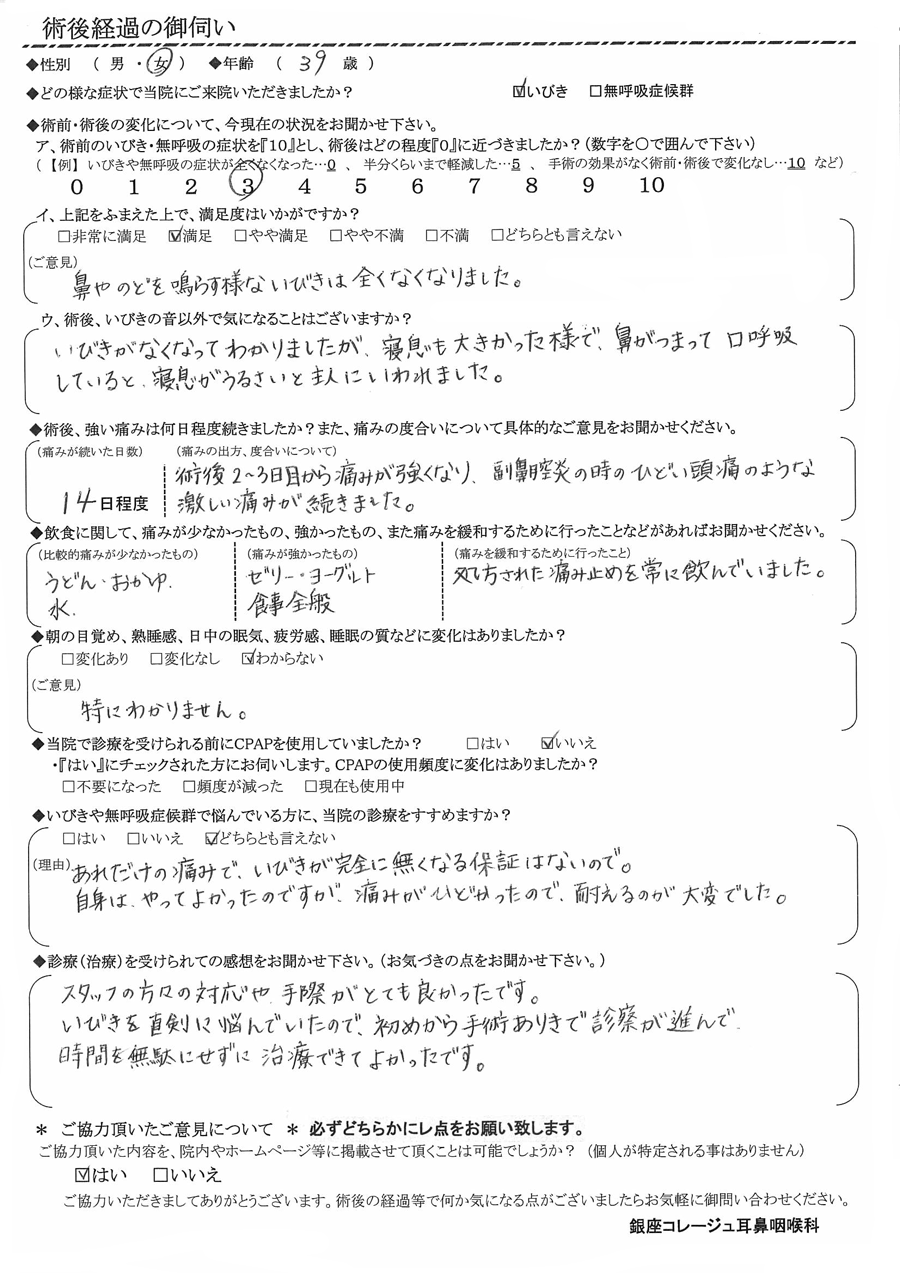 術後経過の御伺い
◆性別 ( 男 ・ 女 ) ◆年齢 ( 39 歳 )
◆どの様な症状で当院にご来院いただきましたか? ☑いびき □無呼吸症候群
◆術前・術後の変化について、今現在の状況をお聞かせ下さい。
ア、術前のいびき・無呼吸の症状を『10』とし、術後はどの程度『0』に近づきましたか?(数字を○で囲んで下さい)
(【例】いびきや無呼吸の症状が全くなくなった…0 、 半分くらいまで軽減した…5 、 手術の効果がなく術前・術後で変化なし…10 など)
0 1 2 3 4 5 6 7 8 9 10
イ、上記をふまえた上で、満足度はいかがですか?
□非常に満足 ☑満足 □やや満足 □やや不満 □不満 □どちらとも言えない
(ご意見)
鼻やのどを鳴らす様ないびきは全くなくなりました。
ウ、術後、いびきの音以外で気になることはございますか?
いびきがなくなってわかりましたが、寝息も大きかった様で、鼻がつまって口呼吸
していると、寝息がうるさいと主人にいわれました。
◆術後、強い痛みは何日程度続きましたか?また、痛みの度合いについて具体的なご意見をお聞かせください。
(痛みが続いた日数) (痛みの出方、度合いについて)
術後2~3日目から痛みが強くなり、副鼻腔炎の時のひどい頭痛のような
14日程度 激しい痛みが続きました。
◆飲食に関して、痛みが少なかったもの、強かったもの、また痛みを緩和するために行ったことなどがあればお聞かせください。
(比較的痛みが少なかったもの) (痛みが強かったもの) (痛みを緩和するために行ったこと)
うどん・おかゆ. ゼリー・ヨーグルト 処方された痛み止めを常に飲んでいました。
水. 食事全般
◆朝の目覚め、熟睡感、日中の眠気、疲労感、睡眠の質などに変化はありましたか?
□変化あり □変化なし ☑わからない
(ご意見)
特にわかりません。
◆当院で診療を受けられる前にCPAPを使用していましたか? □はい ☑いいえ
・『はい』にチェックされた方にお伺いします。CPAPの使用頻度に変化はありましたか?
□不要になった □頻度が減った □現在も使用中
◆いびきや無呼吸症候群で悩んでいる方に、当院の診療をすすめますか?
□はい □いいえ ☑どちらとも言えない
(理由)あれだけの痛みで、いびきが完全に無くなる保証はないので。
自身は、やってよかったのですが、痛みがひどかったので、耐えるのが大変でした。
◆診療(治療)を受けられての感想をお聞かせ下さい。(お気づきの点をお聞かせ下さい。)
スタッフの方々の対応や、手際がとても良かったです。
いびきを真剣に悩んでいたので、初めから手術ありきで診察が進んで
時間を無駄にせずに治療できてよかったです。
* ご協力頂いたご意見について * 必ずどちらかにレ点をお願い致します。
ご協力頂いた内容を、院内やホームページ等に掲載させて頂くことは可能でしょうか? (個人が特定される事はありません)
☑はい □いいえ
ご協力いただきましてありがとうございます。術後の経過等で何か気になる点がございましたらお気軽に御問い合わせください。
銀座コレージュ耳鼻咽喉科